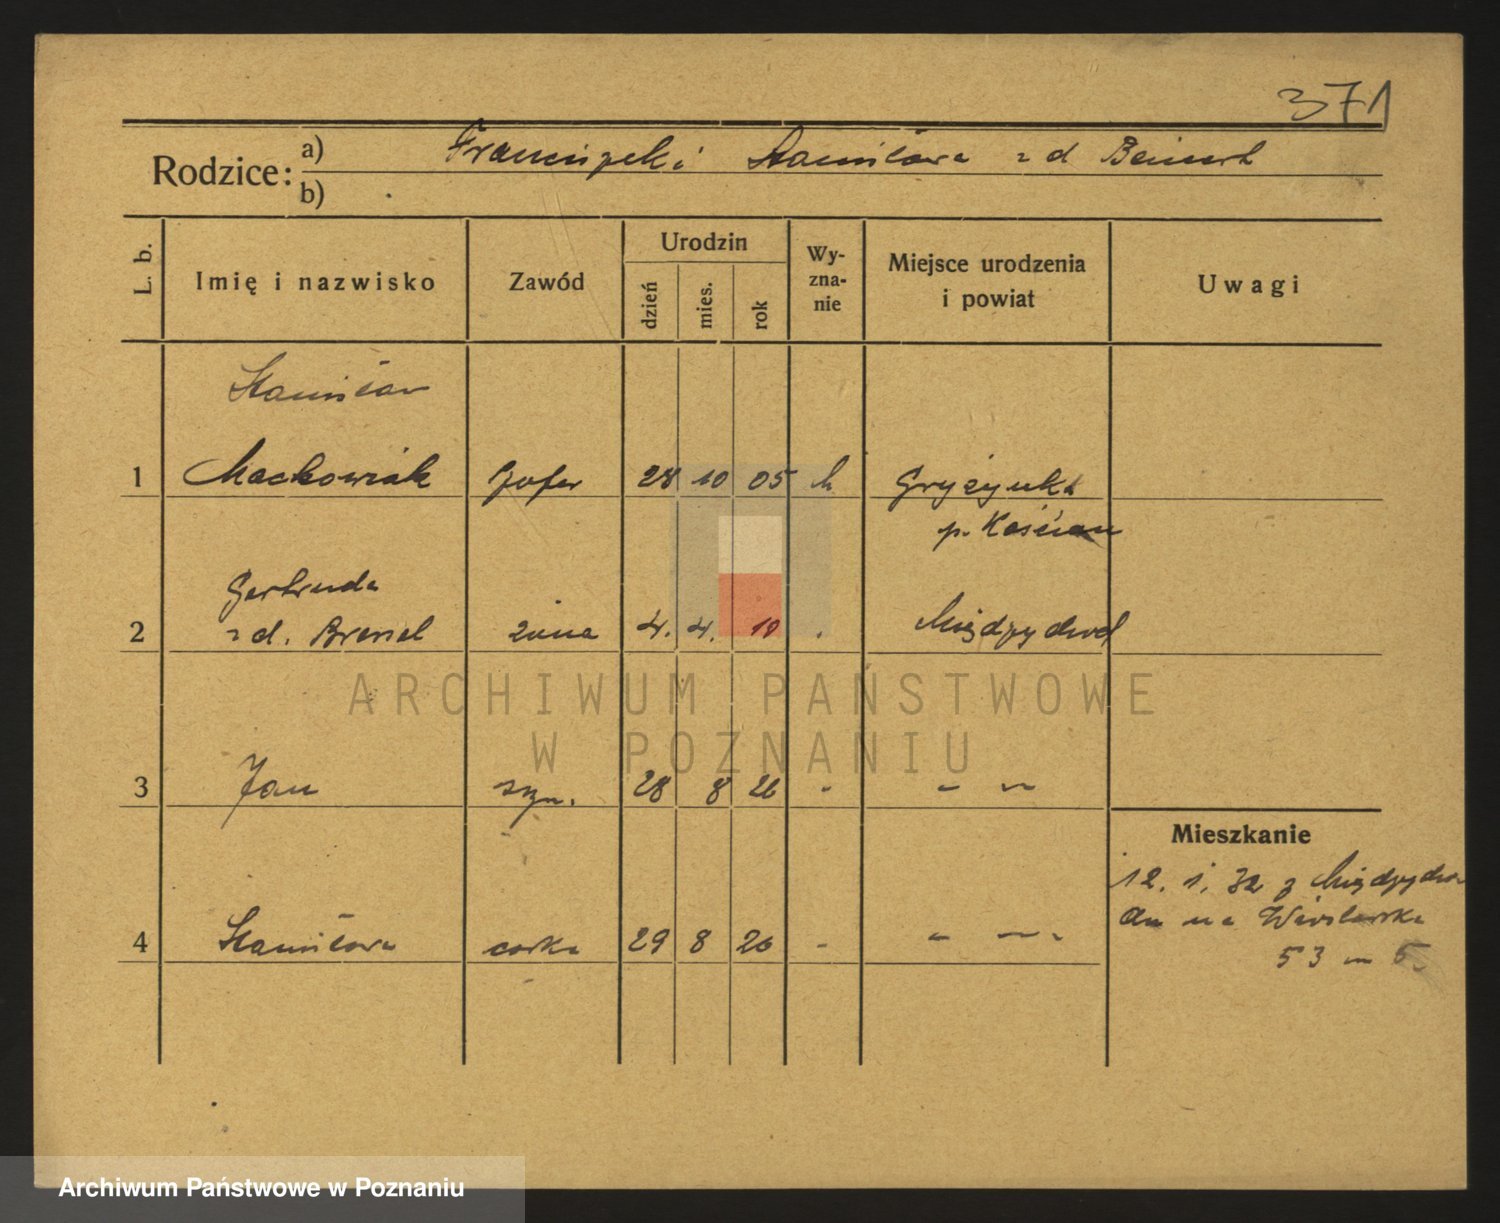 371
Rodzice: a) Franciszek i Stanisława z d
b)
L. b.
Imię i nazwisko
Zawód
Urodzin
dzień
mies.
rok
Wy-
zna-
nie
Miejsce urodzenia
i powiat
Uwagi
Stanisław
1 Maćkowiak szofer 28 10 05
p. Kościan
Gertruda
2 z d. żona 4. 4. 10 Międzychód
3 Jan syn. 28 8 26 - - -
4 Stanisława córka 29 8 26 - - -
Mieszkanie
12. 1. 32 z Międzycho
du na
53 m 5.
ARCHIWUM PAŃSTWOWE
W POZNANIU
Archiwum Państwowe w Poznaniu